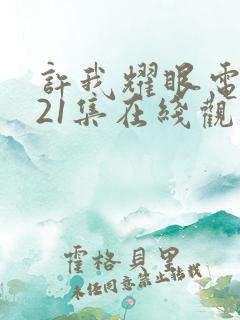 許我耀眼電
21集在綫觀
霍格貝里
未任同意禁止诘载